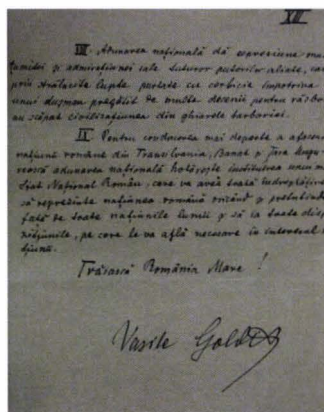 XIII
VIII. Adunarea națională dă expresiune mul
țumitei și admirațiunei sale tuturor puterilor aliate, cari
prin strălucite lupte purtate cu cerbicie împotriva
unui dușman pregătit de multe decenii pentru răsboi
au scăpat civilizațiunea din ghiarele barbariei.
IX. Pentru conducerea mai departe a afacerilor
națiunei române din Transilvania, Banat și Țara Ungu-
rească adunarea națională hotărește instituirea unui ma
Sfat Național Român, care va avea toată îndreptățirea
să reprezinte națiunea română oricând și pretutindeni
față de toate națiunile lumii și să ia toate dispo
zițiunile, pe care le va află necesare în interesul na
țiunii.
Trăiască România Mare!
Vasile Goldiș